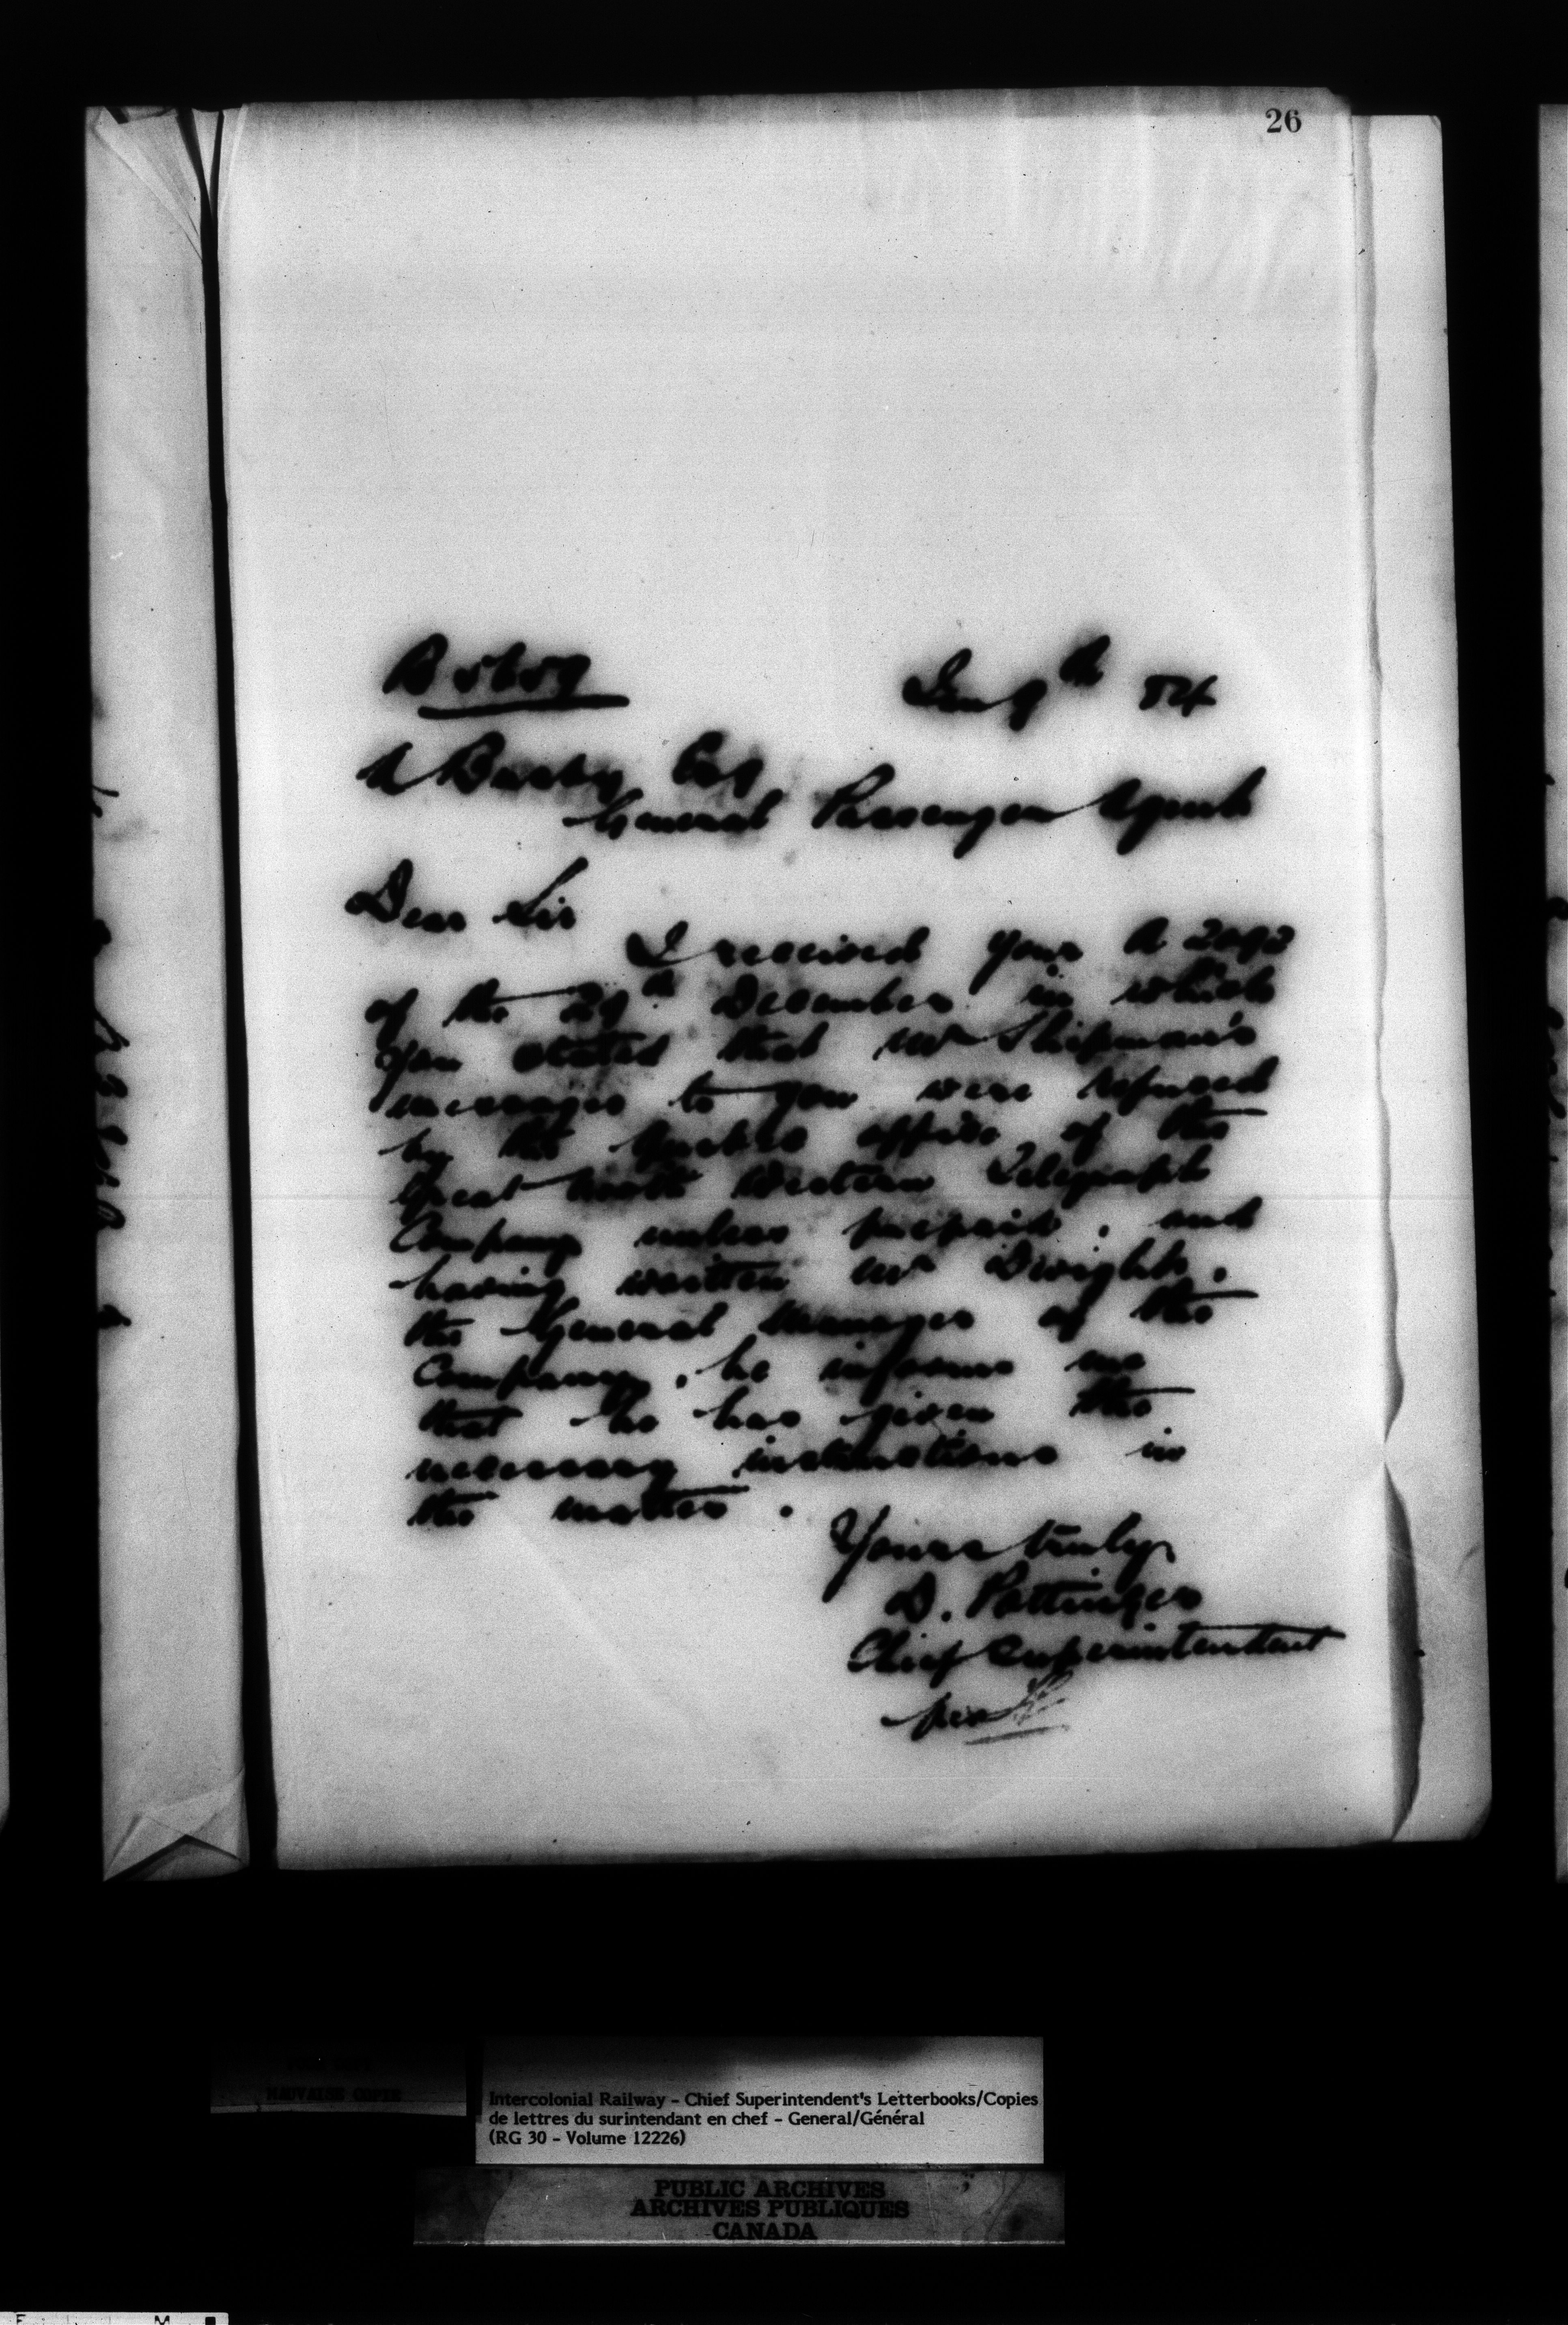 26
Jan 9th 84
Busby Esq
General Passenger Agent
Dear Sir
I received your A 2092
of the 29th December in which
you stated that Mr Shipman's
messages to you were refused
by the Quebec office of the
Great North Western Telegraph
Company unless prepaid, and
having written Mr Dwight,
the General Manager of the
Company, he informs me
that he has given the
necessary instructions in
the matter.
Yours truly
D. Pottinger
Chief Superintendent
per
MAUVAISE COPIE
Intercolonial Railway - Chief Superintendent's Letterbooks/Copies
de lettres du surintendant en chef - General/Général
(RG 30 - Volume 12226)
PUBLIC ARCHIVES
ARCHIVES PUBLIQUES
CANADA